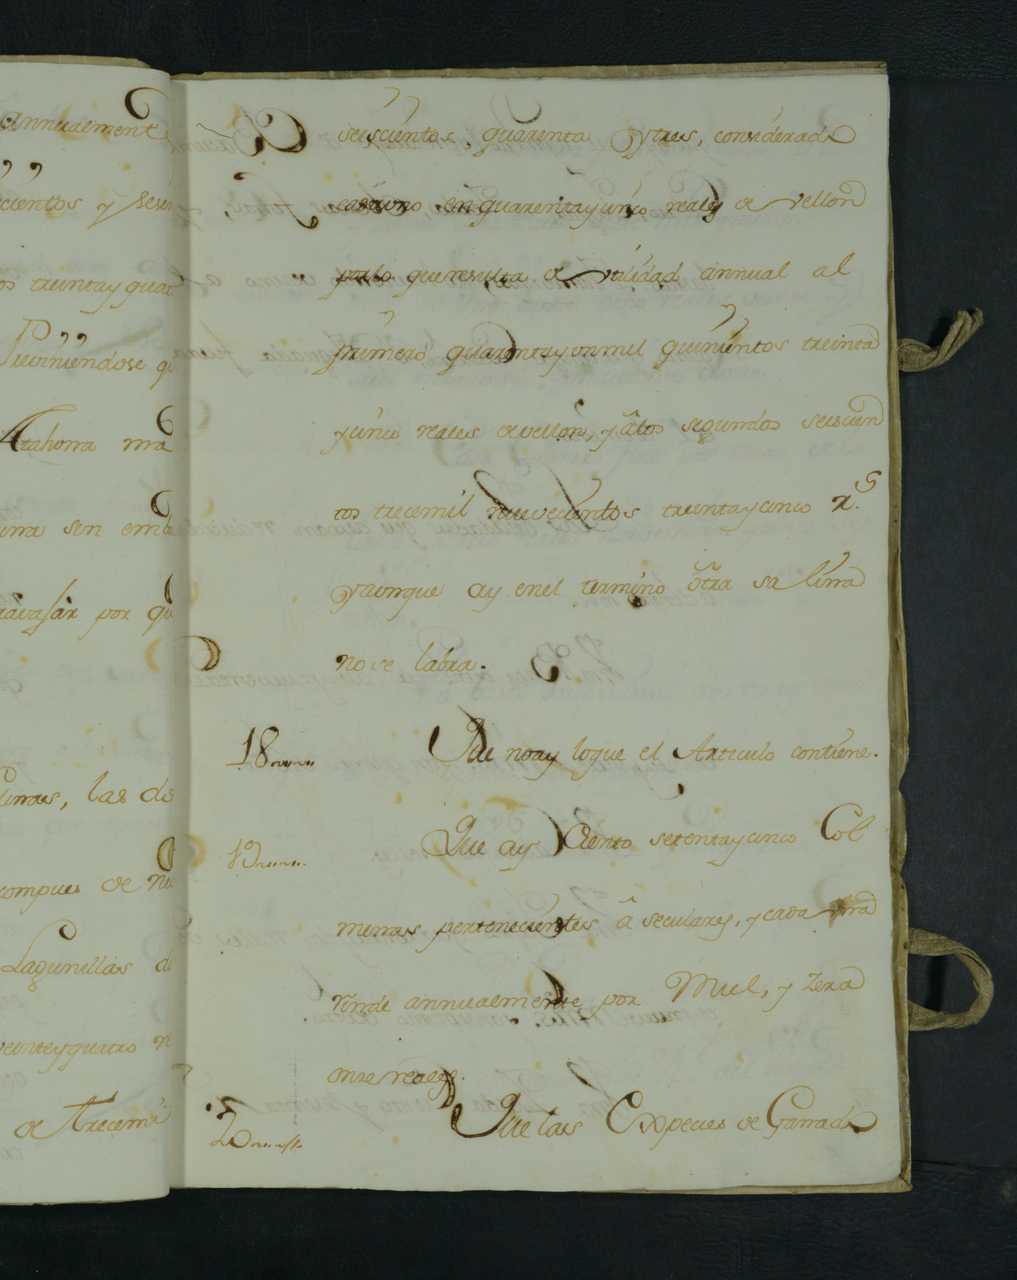 annualment
cientos y sesen
os treinta y quat
Previniendose qu
Atahorra ma
rra sin emb
travasar por qu
linas, las do
compues de n
Lagunillas d
veinte y quatro n
de trecemi
seiscientos, quarenta y tres, considerado
cada uno en quarenta y cinco reales de vellon
por lo que resulta de utilidad annual al
primero quarenta y un mil quinientos treinta
y cinco reales de vellon, y â los segundos seiscien
tos trece mil nuevecientos treinta y cinco rs
y aunque ay en el termino ôtra salina
no se labra.
18 Que no ay lo que el Articulo contiene.
19 Que ay Ciento setenta y cinco Col
menas pertenecientes â seculares, y cada una
rinde annualmente por Miel, y Zera
onze reales.
20 Que las Expecies de Ganado